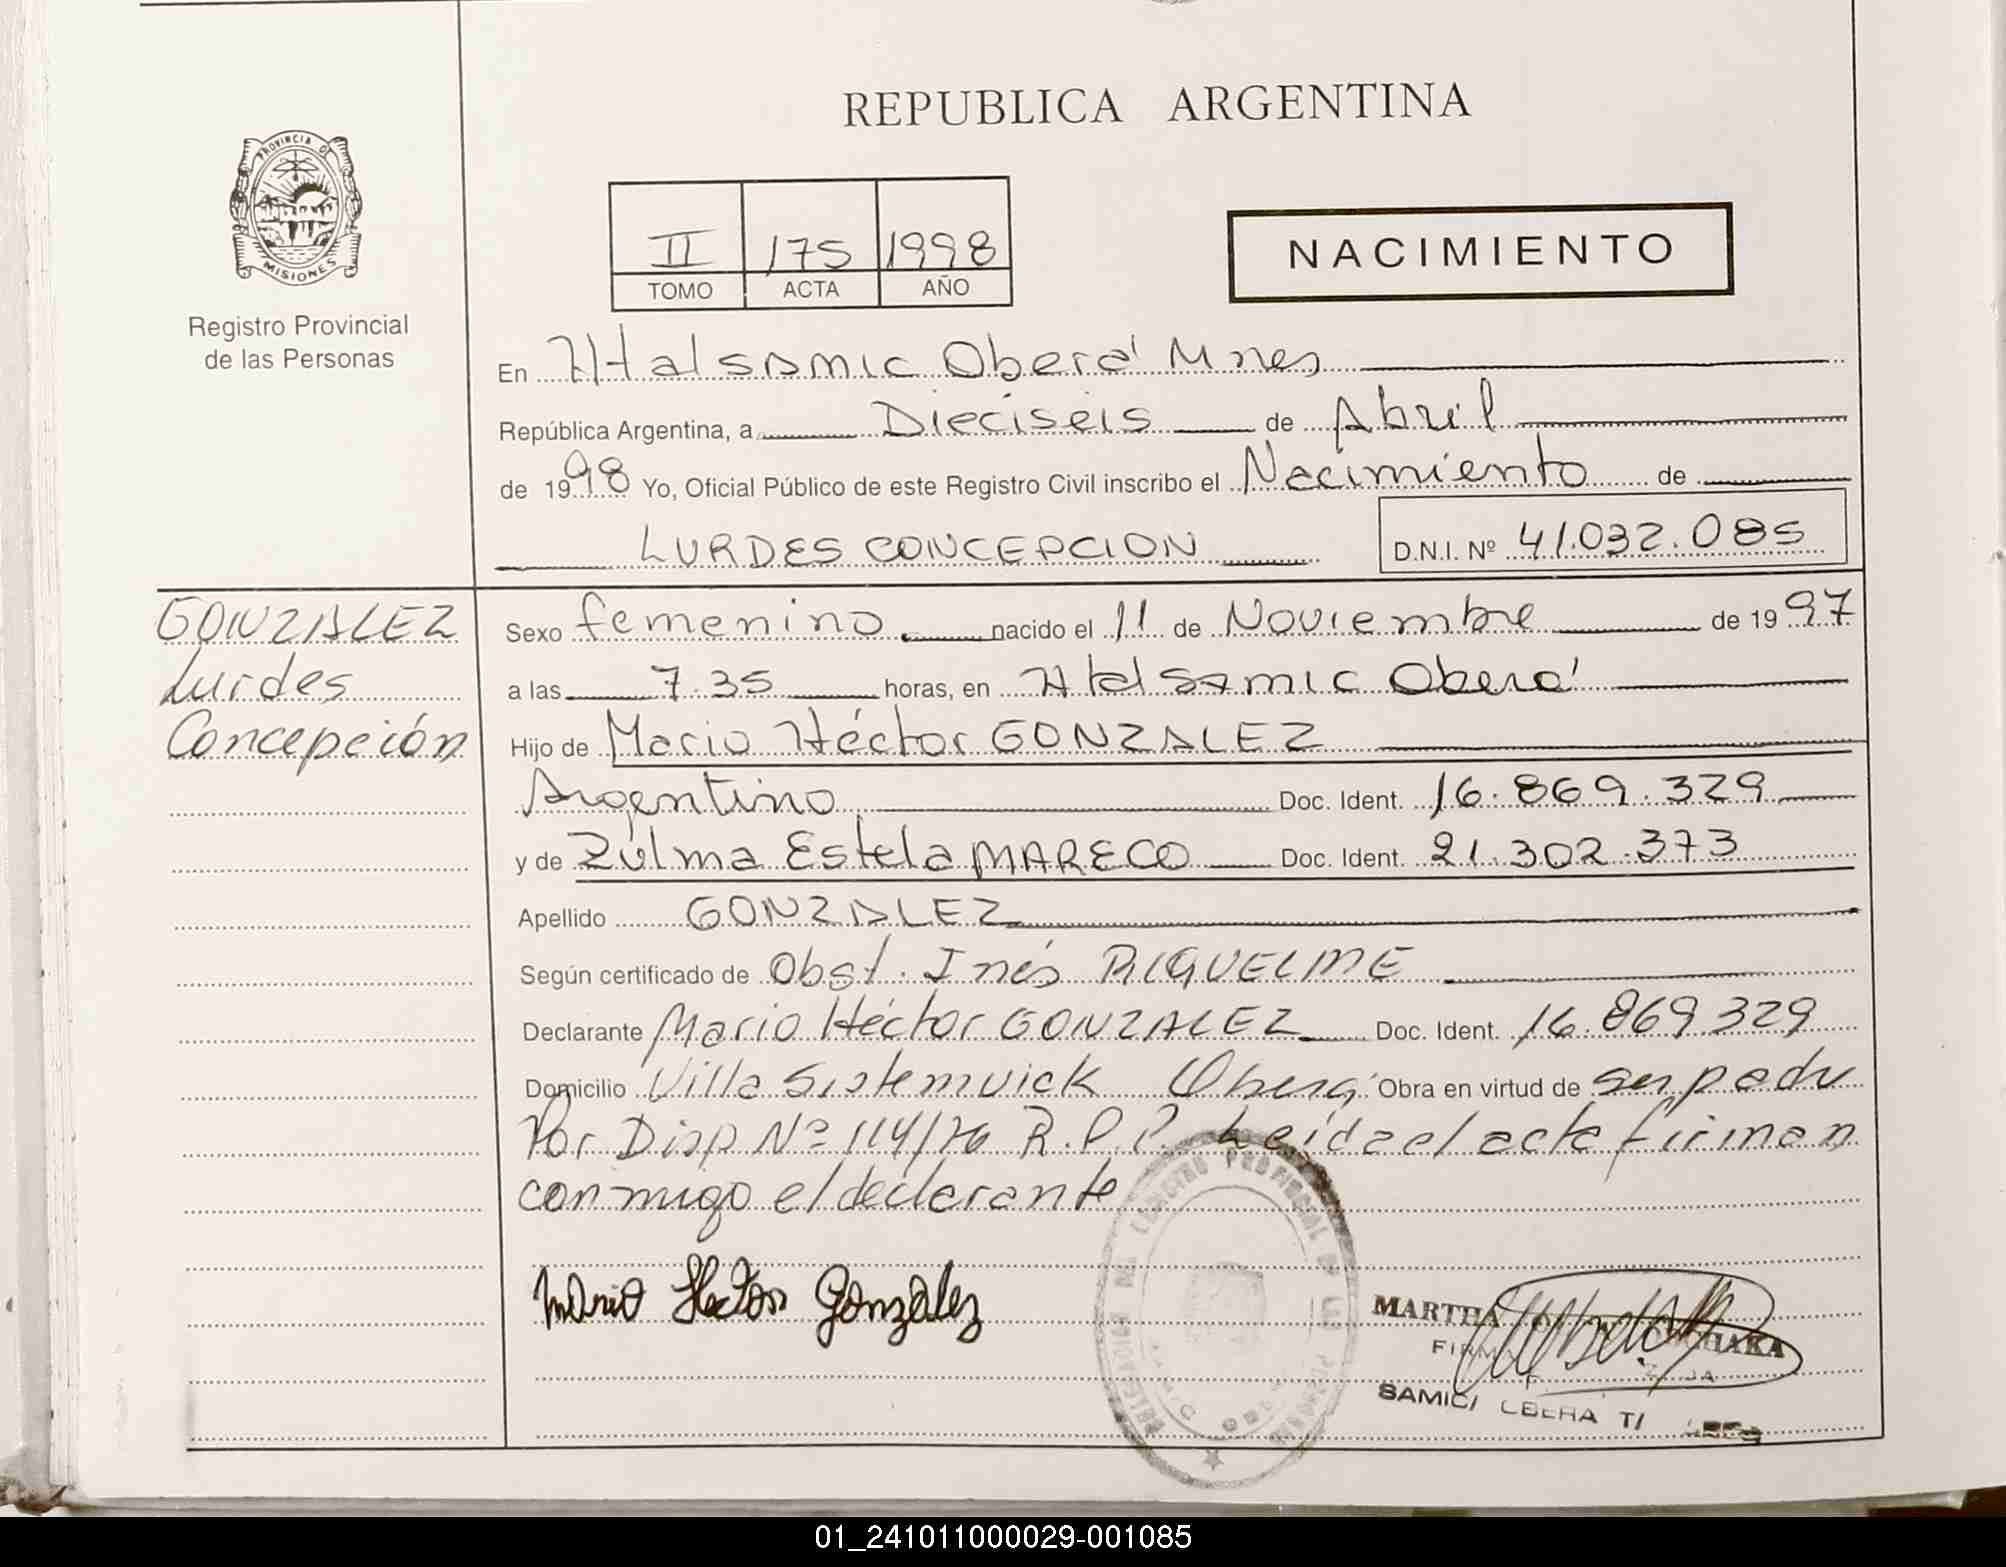 REPUBLICA ARGENTINA
PROVINCIA DE
MISIONES
Registro Provincial
de las Personas
II 175 1998
TOMO ACTA AÑO
NACIMIENTO
En Htal SAMIC Oberá Mnes
República Argentina, a Dieciseis de Abril
de 1998 Yo, Oficial Público de este Registro Civil inscribo el Nacimiento de
LURDES CONCEPCION D.N.I. Nº 41.032.085
GONZALEZ
Lurdes
Concepción
Sexo femenino nacido el 11 de Noviembre de 1997
a las 7.35 horas, en Htal Samic Oberá
Hijo de Mario Héctor GONZALEZ
Argentino Doc. Ident. 16.869.329
y de Zulma Estela MARECO Doc. Ident. 21.302.373
Apellido GONZALEZ
Según certificado de Obst. Inés RIQUELME
Declarante Mario Héctor GONZALEZ Doc. Ident. 16.869329
Domicilio Villa Oberá Obra en virtud de ser padre
Por Disp Nº 114/76 R.P.P. Leída el acta firman
conmigo el declarante
Mario Hector Gonzalez
MARTHA
SAMIC
01_241011000029-001085